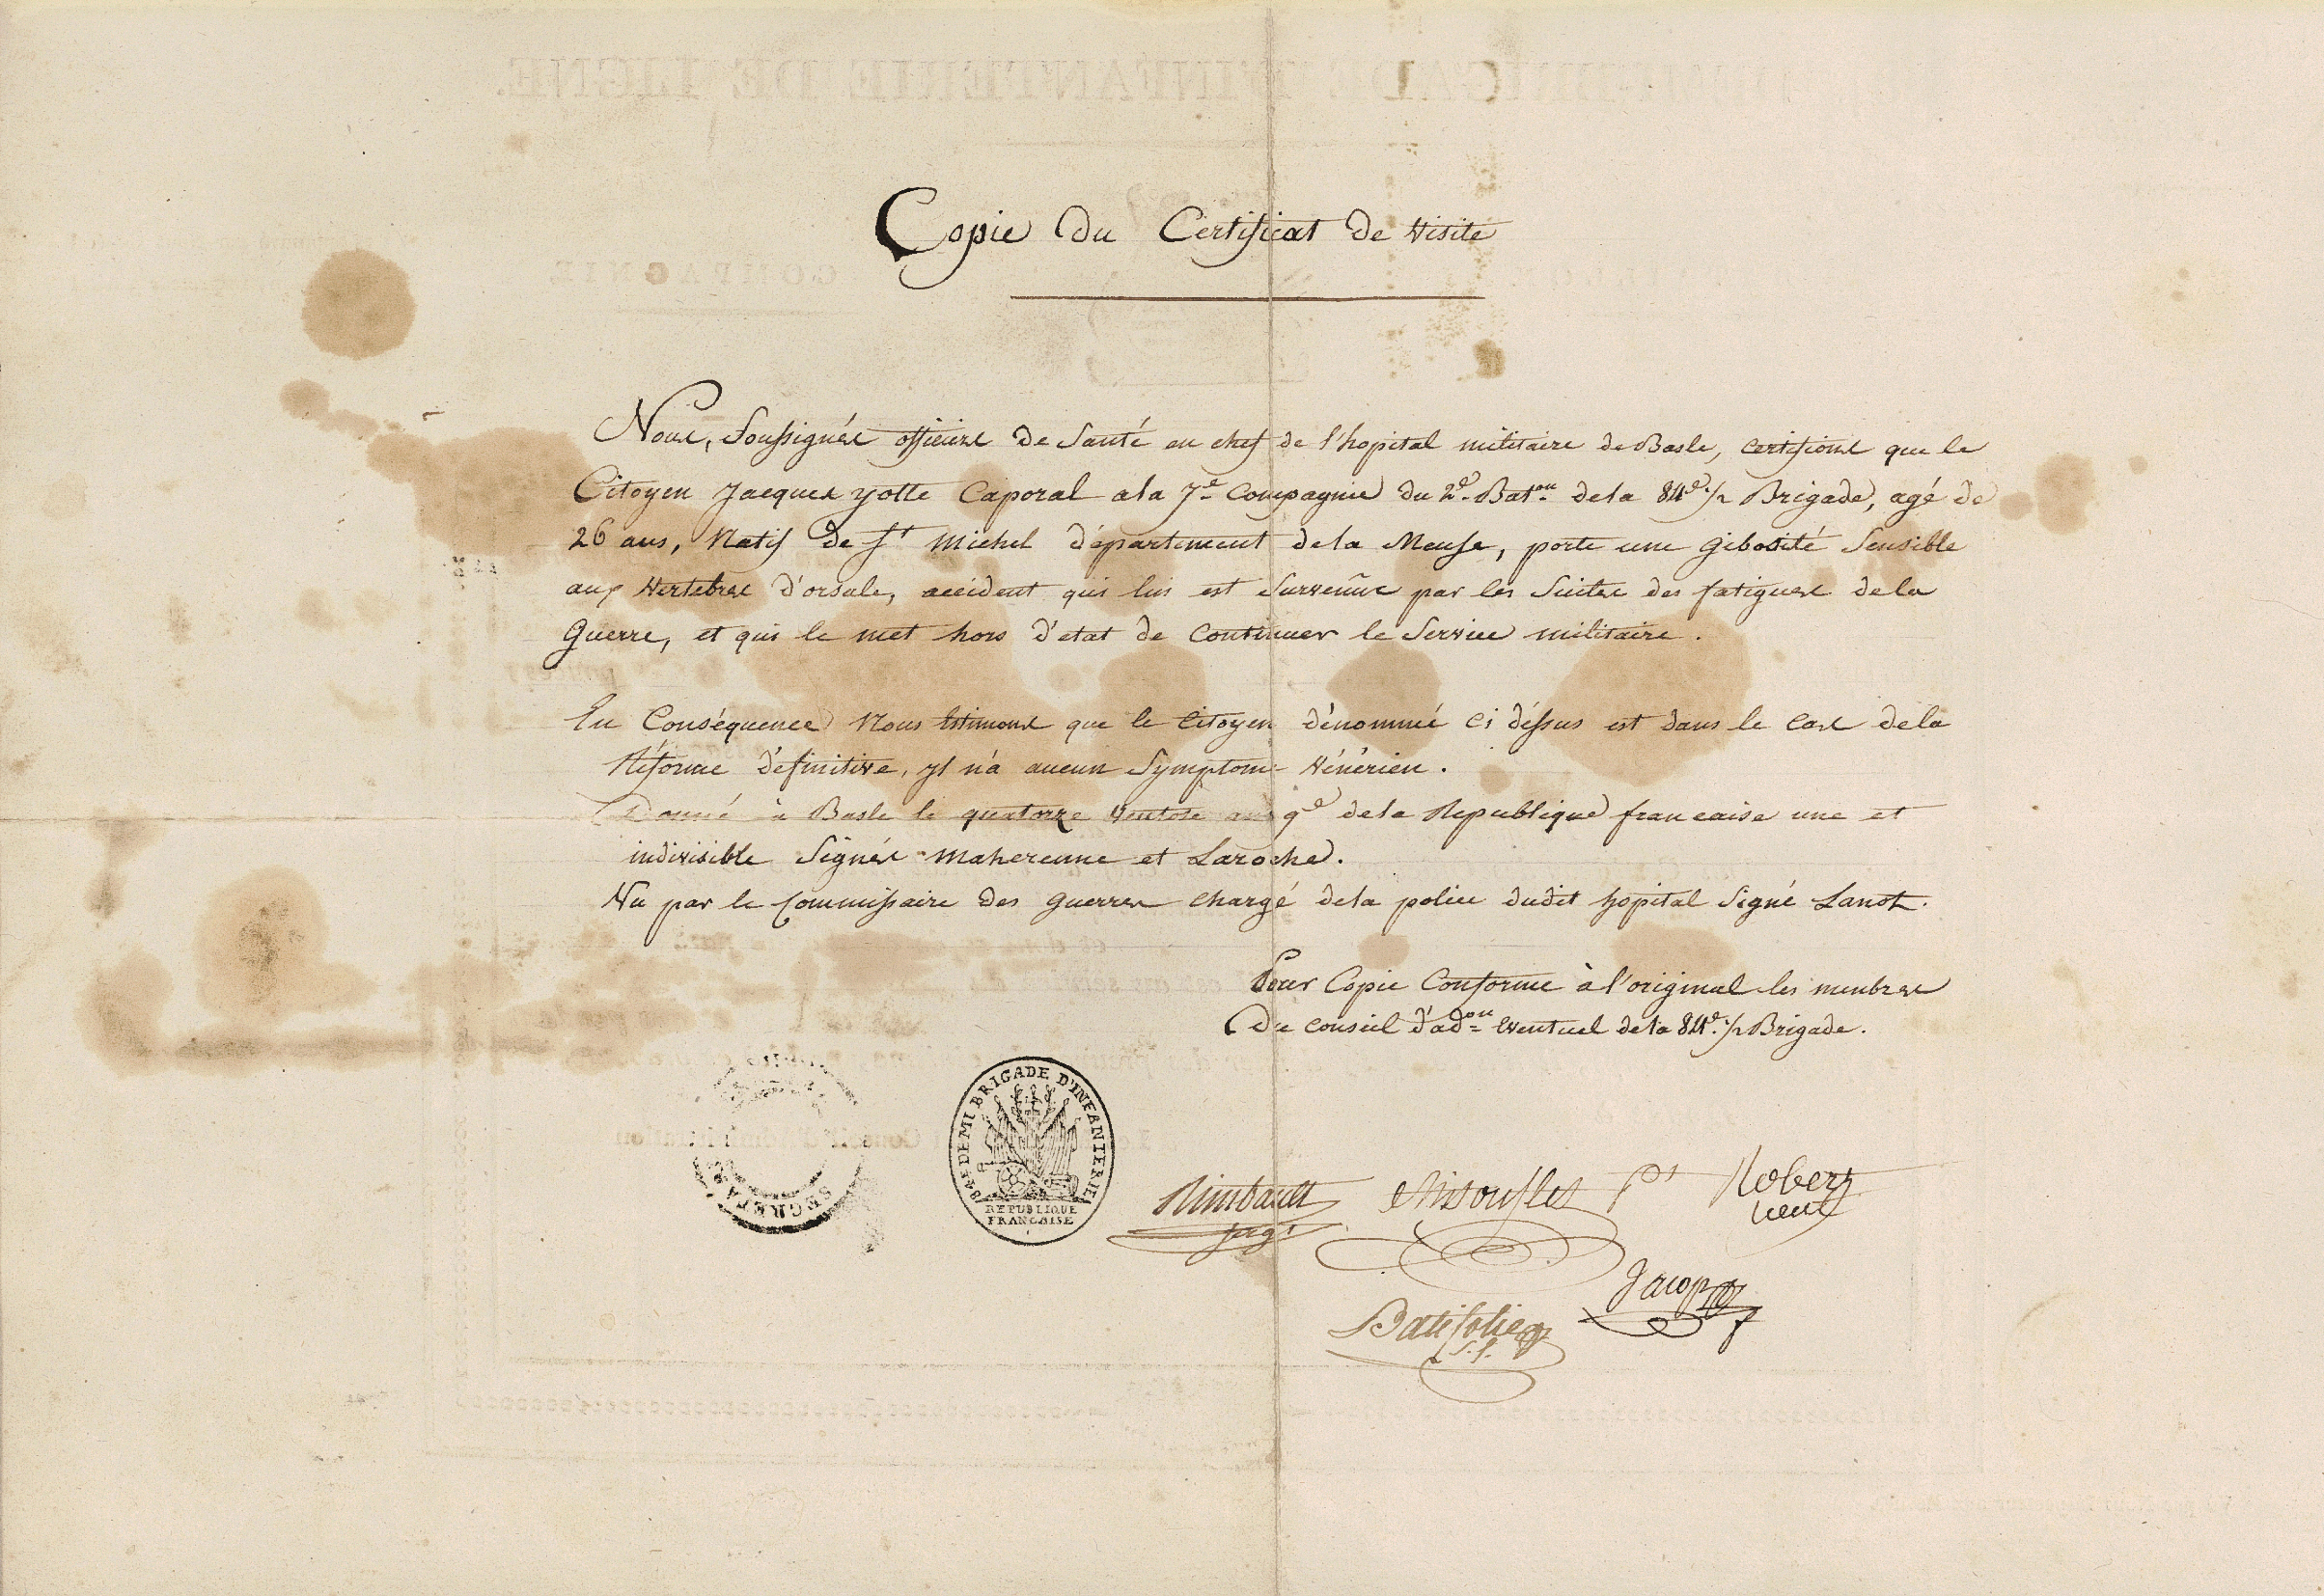 Copie Du Certificat de Visite
Nous, Soussignés officiers De Santé en chef de l'hopital militaire de Basle, certifions que le
Citoyen Jacques yotte Caporal ala 7e Compagnie du 2e Baton dela 84e ½ Brigade, agé de
26 ans, Natif de St Michel département dela Meuse, porte une gibosité Sensible
aux Vertebres d'orsale, accident qui lui est Survenüe par les Suites des fatigues dela
Guerre, et qui le met hors d'etat de Continuer le Service militaire.
En Conséquence Nous Estimons que le Citoyen dénommé ci déssus est dans le Cas dela
Réforme définitive, yl n'a aucun Symptome Vénérien.
Donné à Basle le quatorze Ventose an 9e dela Republique francaise une et
indivisible Signés Maherenne et Laroche.
Vu par le Commissaire Des guerres Chargé dela police dudit hopital Signé Lanot.
Pour Copie Conforme à l'original les menbres
Du Conseil d'adon Eventuel dela 84e ½ Brigade.
84E DEMI BRIGADE D'INFANTERIE
REPUBLIQUE
FRANCAISE
Rimbault
Robert